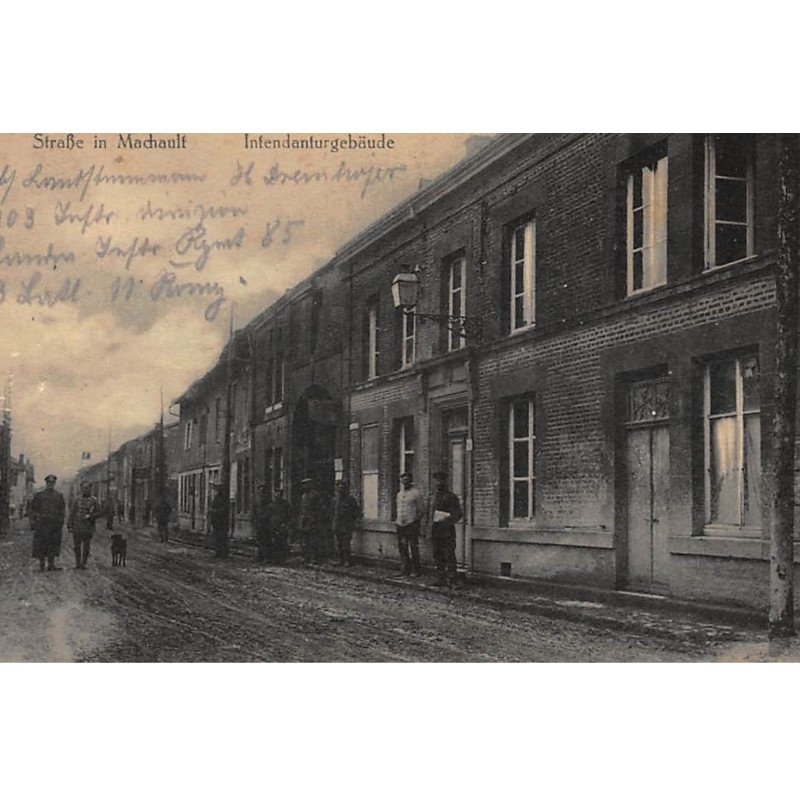 Straße in Machault Intendanturgebäude
Landsturmmann H
103 Inftr. division
Inftr Rgmt 85
Batl. 11 Komp.